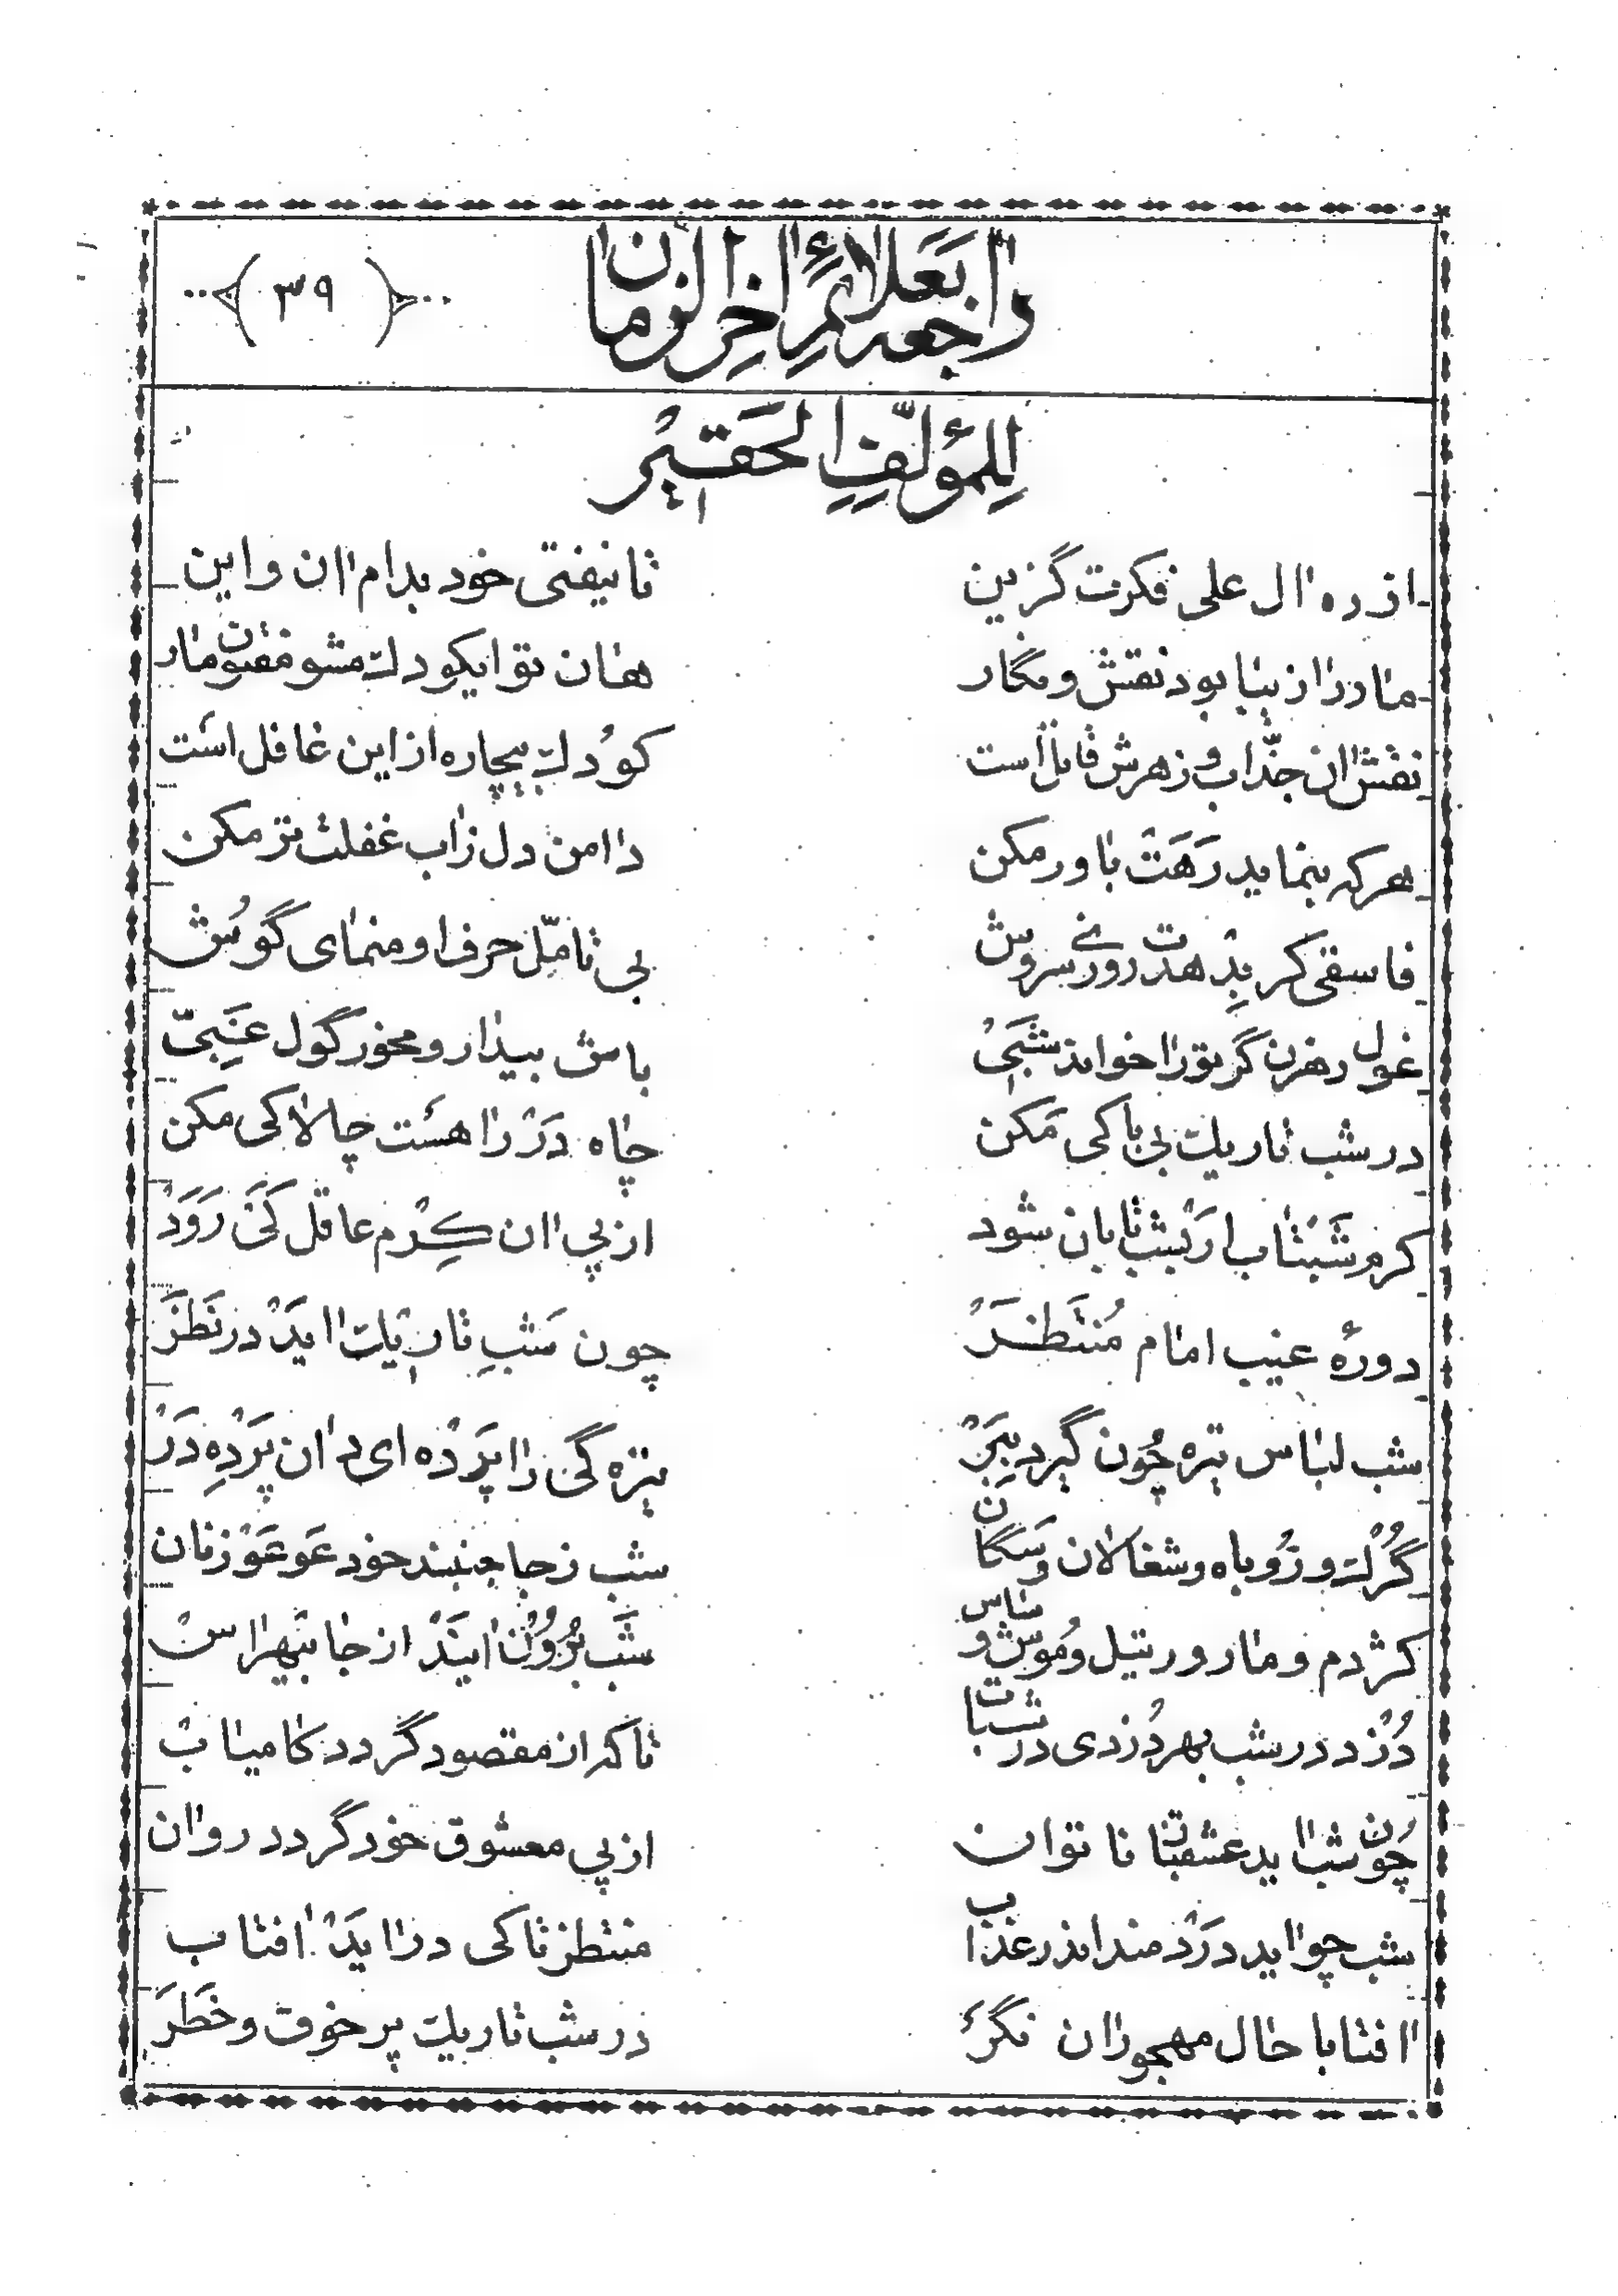 راجعه بعلائم اخر الزمان
﴿ ۳۹ ﴾
للمؤلّف الحقیر
از ره ال علی فکرت گزین تا نیفتی خود بدام ان و این
مار را زیبا بود نقش و نگار هان تو ایکودك مشو مفتون مار
نقش ان جذّاب و زهرش قاتل است کودك بیچاره از این غافل است
هر که بنماید رهت باور مکن دامن دل زاب غفلت تر مکن
فاسقی کر بدهدت روزی سروش بی تامّل حرف او منمای گوش
غول رهزن گر تو را خواند شبی باش بیدار و مخور گول غبیّ
در شب تاریك بی باکی مکن چاه در راهست چالاکی مکن
کرم شبتاب ار بشب تابان شود از پی ان کرم عاقل کی رود
دورهٔ غیب امام منتظر چون شب تاریك اید در نظر
شب لباس تیره چون گیرد ببر تیره گی را پرده ای دان پرده در
گرك و روباه و شغالان و سگان شب زجا جنبند خود عوعو زنان
کژدم و مار و رتیل و موش و ساس شب برون ایند از جا بیهراس
دزد در شب بهر دزدی در شتاب تا که از مقصود گردد کامیاب
چون شب اید عشقتان ناتوان از پی معشوق خود گردد روان
شب چو اید دردمند اندر عذاب منتظر تا کی در اید افتاب
افتابا حال مهجوران نگر در شب تاریك پر خوف و خطر